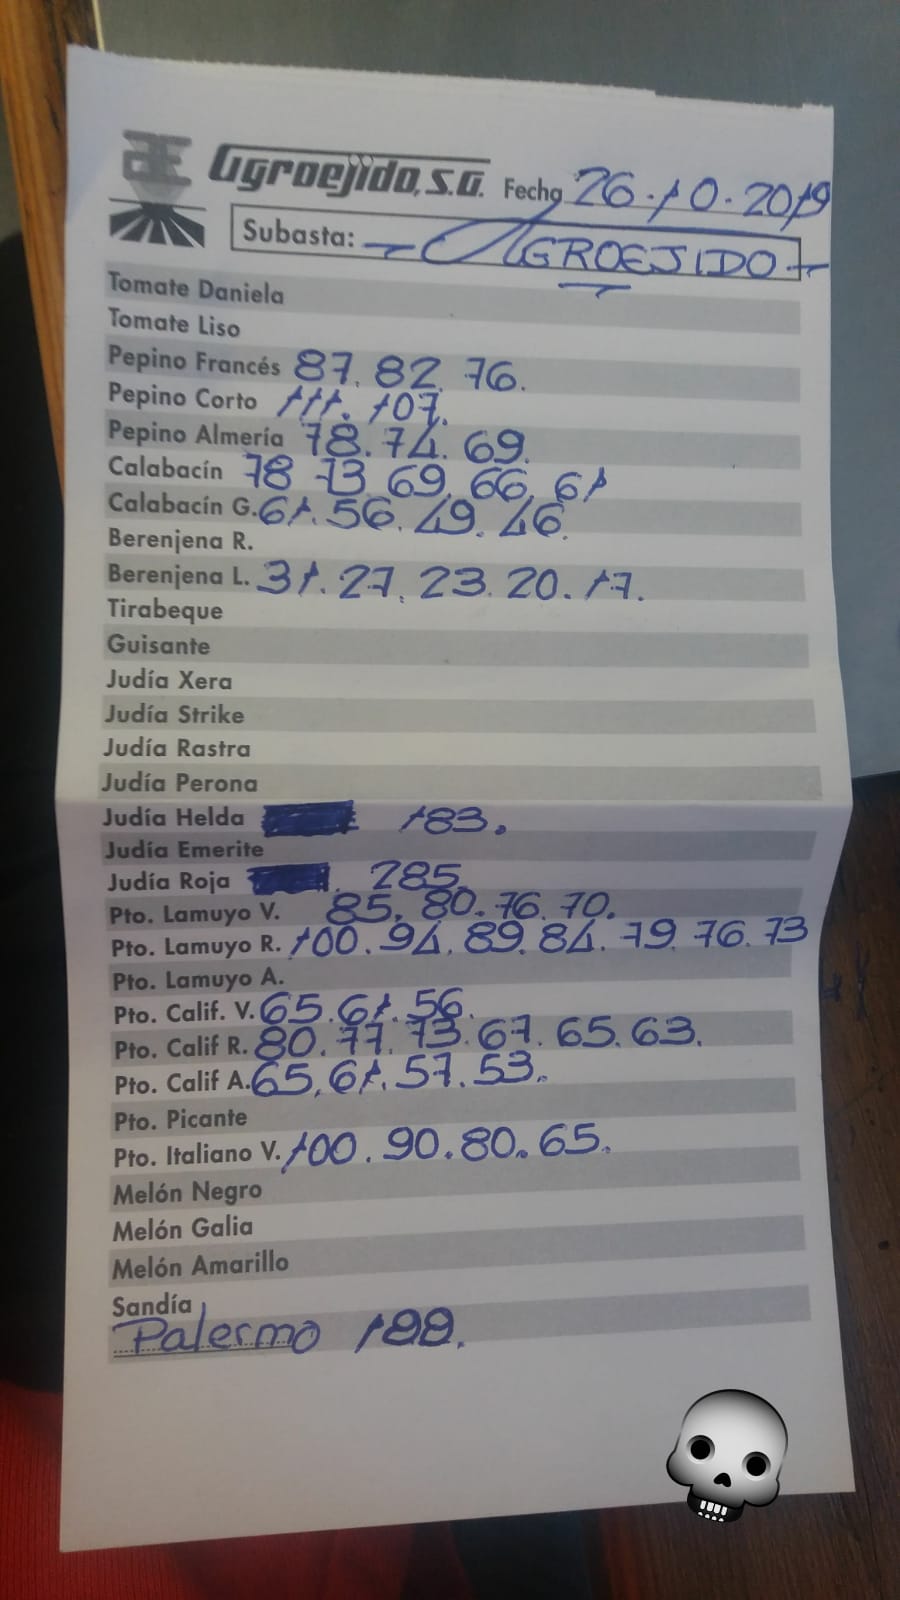 Agroejido, S.A. Fecha 26.10.2019
Subasta: - AGROEJIDO -
Tomate Daniela
Tomate Liso
Pepino Francés 87. 82. 76.
Pepino Corto 111. 107.
Pepino Almería 78. 74. 69.
Calabacín 78 73 69. 66. 61
Calabacín G. 61. 56. 49. 46.
Berenjena R.
Berenjena L. 31. 27. 23. 20. 17.
Tirabeque
Guisante
Judía Xera
Judía Strike
Judía Rastra
Judía Perona
Judía Helda 183.
Judía Emerite
Judía Roja . 285.
Pto. Lamuyo V. 85. 80. 76. 70.
Pto. Lamuyo R. 100. 94. 89. 84. 79. 76. 73
Pto. Lamuyo A.
Pto. Calif. V. 65. 61. 56.
Pto. Calif R. 80. 77. 73. 67. 65. 63.
Pto. Calif A. 65. 61. 57. 53.
Pto. Picante
Pto. Italiano V. 100. 90. 80. 65.
Melón Negro
Melón Galia
Melón Amarillo
Sandía
Palermo